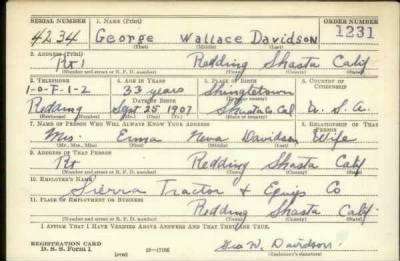 SERIAL NUMBER 1. NAME (Print) ORDER NUMBER
4234 George Wallace Davidson 1231
(First) (Middle) (Last)
2. ADDRESS (Print)
Rt 1 Redding Shasta Calif
(Number and street or R. F. D. number) (Town) (County) (State)
3. TELEPHONE 4. AGE IN YEARS 5. PLACE OF BIRTH 6. COUNTRY OF CITIZENSHIP
1-0-F-1-2 33 years Shingletown
DATE OF BIRTH (Town or county)
Redding Sept 25 1907 Shasta Co. Cal U. S. A.
(Exchange) (Number) (Mo.) (Day) (Yr.) (State or country)
7. NAME OF PERSON WHO WILL ALWAYS KNOW YOUR ADDRESS 8. RELATIONSHIP OF THAT PERSON
Mrs. Erma Neva Davidson Wife
(Mr., Mrs., Miss) (First) (Middle) (Last)
9. ADDRESS OF THAT PERSON
Rt Redding Shasta Calif
(Number and street or R. F. D. number) (Town) (County) (State)
10. EMPLOYER'S NAME
Sierra Tractor & Equip Co
11. PLACE OF EMPLOYMENT OR BUSINESS
Redding Shasta Calif
(Number and street or R. F. D. number) (Town) (County) (State)
I AFFIRM THAT I HAVE VERIFIED ABOVE ANSWERS AND THAT THEY ARE TRUE.
REGISTRATION CARD
D. S. S. Form 1 (over) Geo W. Davidson
(Registrant's signature)